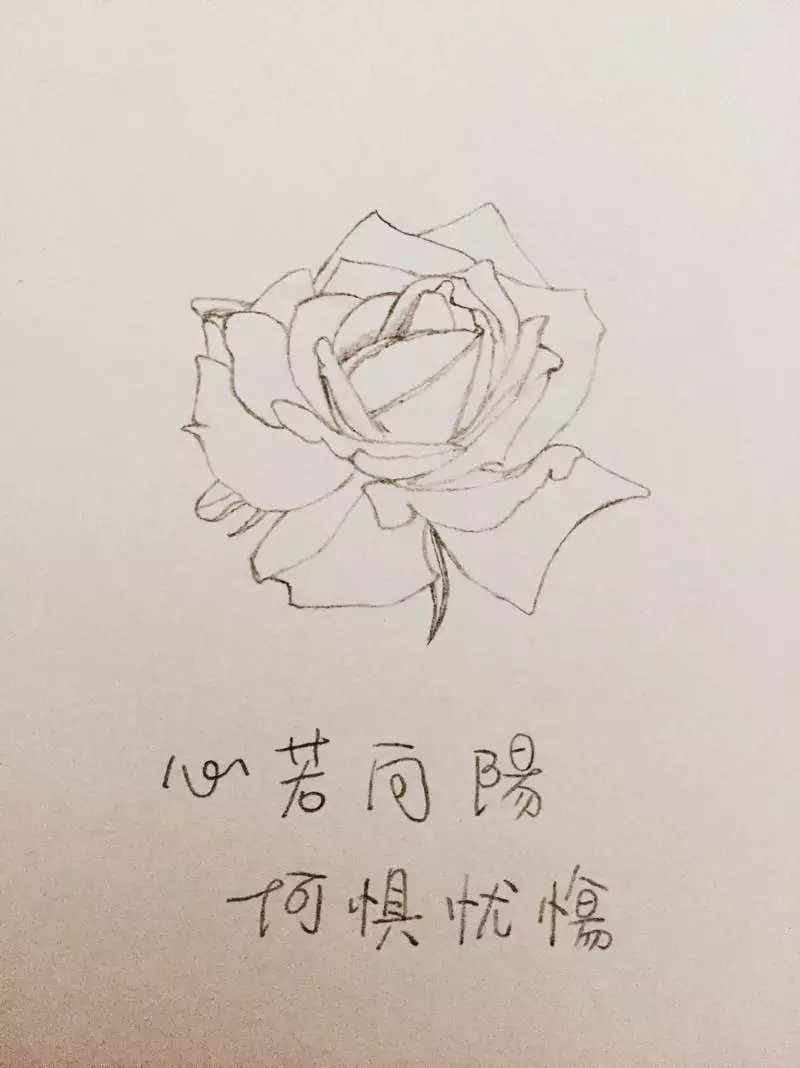 心若向陽
何惧忧傷